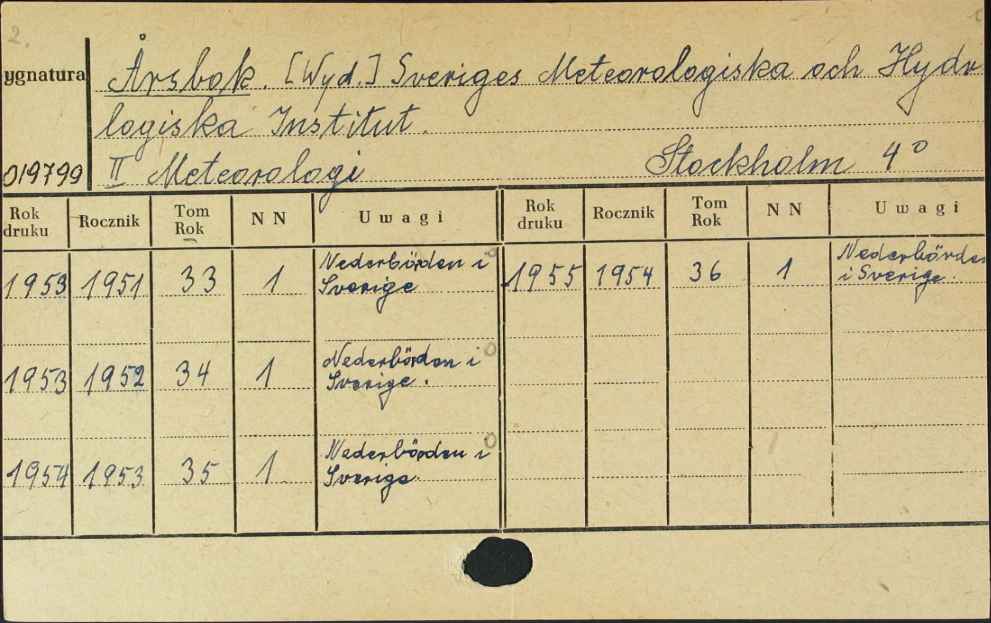 2.
ygnatura
Årsbok. [Wyd.] Sveriges Meteorologiska och Hydro
logiska Institut.
019799 II Meteorologi Stockholm 4°
Rok druku Rocznik Tom Rok NN Uwagi Rok druku Rocznik Tom Rok NN Uwagi
1953 1951 33 1 Nederbörden i Sverige 1955 1954 36 1 Nederbörden i Sverige.
1953 1952 34 1 Nederbörden i Sverige.
1954 1953 35 1 Nederbörden i Sverige